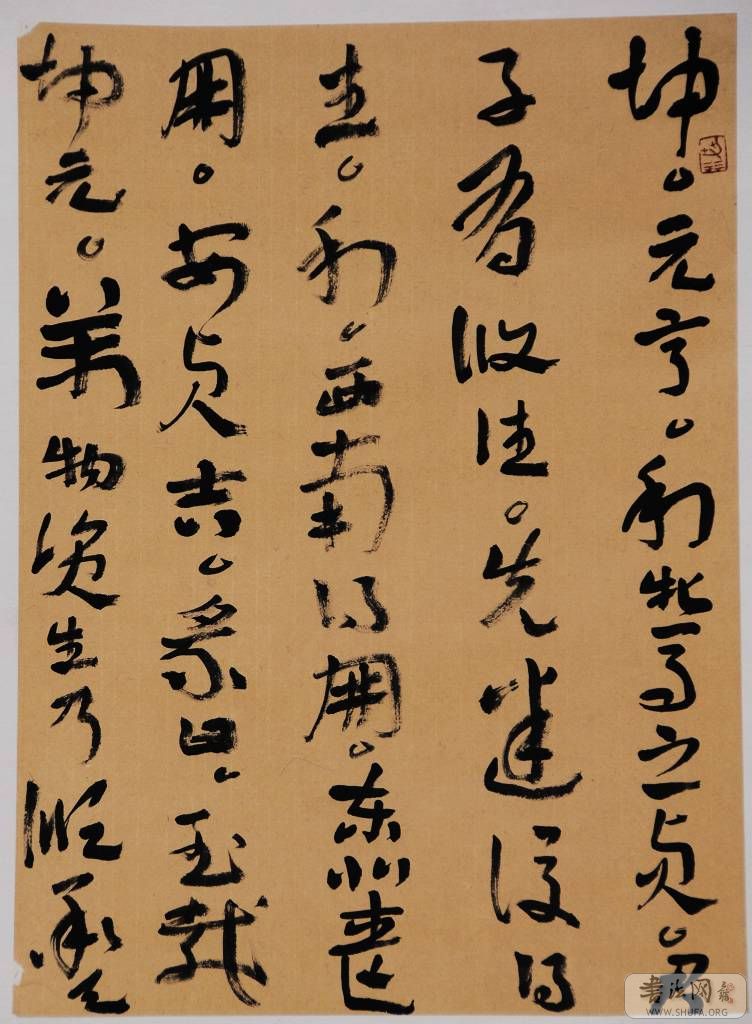 坤。元亨。利牝馬之贞。君
子有攸往。先迷後得
主。利。西南得朋。东北喪
朋。安贞吉。彖曰。至哉
坤元。萬物资生乃順承天
書法网
WWW.SHUFA.ORG